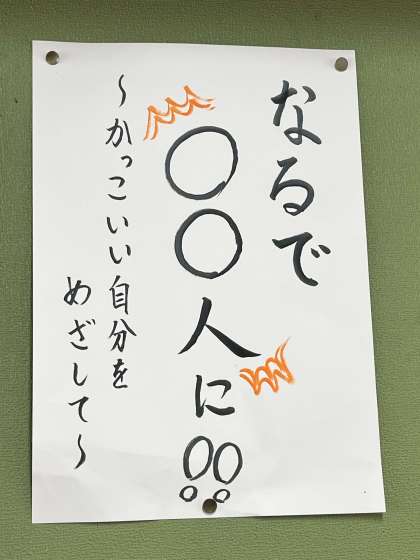 なるで
〇〇人に!!
~かっこいい自分を
めざして~